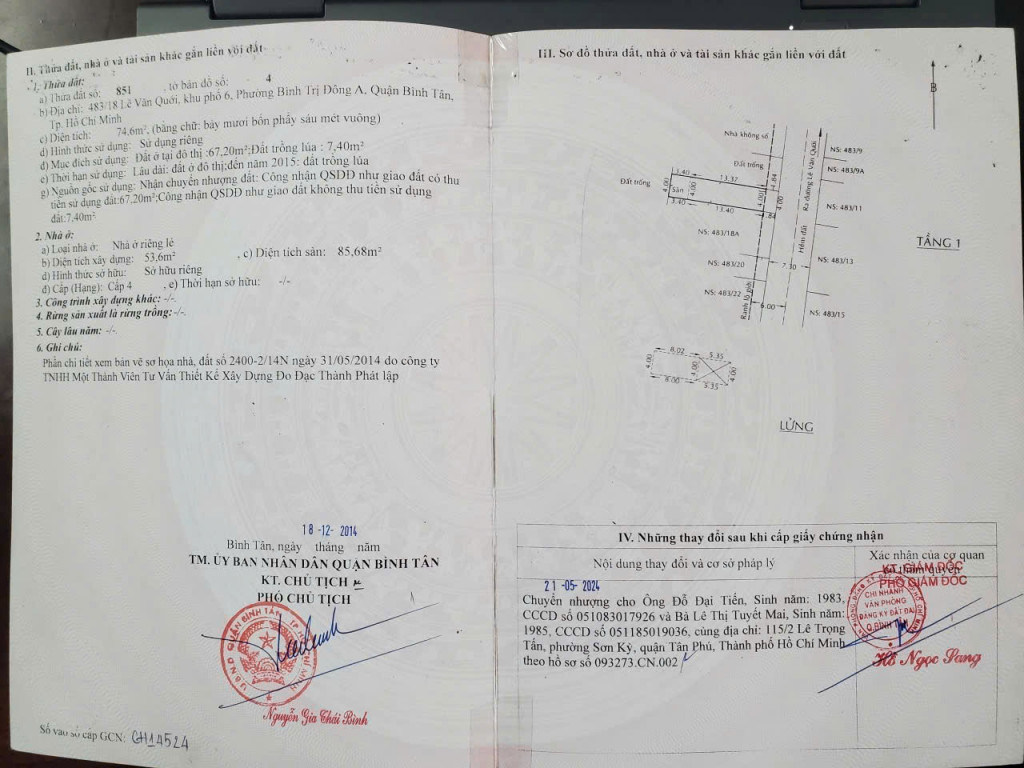 II. Thửa đất, nhà ở và tài sản khác gắn liền với đất
1. Thửa đất:
a) Thửa đất số: 851 , tờ bản đồ số: 4
b) Địa chỉ: 483/18 Lê Văn Quới, khu phố 6, Phường Bình Trị Đông A, Quận Bình Tân,
Tp. Hồ Chí Minh
c) Diện tích: 74,6m², (bằng chữ: bảy mươi bốn phẩy sáu mét vuông)
d) Hình thức sử dụng: Sử dụng riêng
đ) Mục đích sử dụng: Đất ở tại đô thị :67,20m²;Đất trồng lúa : 7,40m²
e) Thời hạn sử dụng: Lâu dài: đất ở đô thị;đến năm 2015: đất trồng lúa
g) Nguồn gốc sử dụng: Nhận chuyển nhượng đất: Công nhận QSDĐ như giao đất có thu
tiền sử dụng đất:67,20m²;Công nhận QSDĐ như giao đất không thu tiền sử dụng
đất:7,40m²
2. Nhà ở:
a) Loại nhà ở: Nhà ở riêng lẻ
b) Diện tích xây dựng: 53,6m² , c) Diện tích sàn: 85,68m²
d) Hình thức sở hữu: Sở hữu riêng
đ) Cấp (Hạng): Cấp 4 , e) Thời hạn sở hữu: -/-
3. Công trình xây dựng khác: -/-.
4. Rừng sản xuất là rừng trồng: -/-.
5. Cây lâu năm: -/-.
6. Ghi chú:
Phần chi tiết xem bản vẽ sơ họa nhà, đất số 2400-2/14N ngày 31/05/2014 do công ty
TNHH Một Thành Viên Tư Vấn Thiết Kế Xây Dựng Đo Đạc Thành Phát lập
18-12-2014
Bình Tân, ngày tháng năm
TM. ỦY BAN NHÂN DÂN QUẬN BÌNH TÂN
KT. CHỦ TỊCH
PHÓ CHỦ TỊCH
Nguyễn Gia Thái Bình
Số vào sổ cấp GCN: CH14524
III. Sơ đồ thửa đất, nhà ở và tài sản khác gắn liền với đất
B
Nhà không số
Đất trống
Đất trống
3.40
13.37
4.84
4.00
Sân
4.00
4.00
4.00
3.40
13.40
4.84
NS: 483/18A
NS: 483/20
NS: 483/22
Ranh lộ giới
6.00
7.30
Hẻm đất
Ra đường Lê Văn Quới
NS: 483/9
NS: 483/9A
NS: 483/11
NS: 483/13
NS: 483/15
TẦNG 1
8.02
5.35
4.00
4.00
4.00
8.00
5.35
LỬNG
IV. Những thay đổi sau khi cấp giấy chứng nhận
Nội dung thay đổi và cơ sở pháp lý
Xác nhận của cơ quan
có thẩm quyền
21-05-2024
Chuyển nhượng cho Ông Đỗ Đại Tiến, Sinh năm: 1983,
CCCD số 051083017926 và Bà Lê Thị Tuyết Mai, Sinh năm:
1985, CCCD số 051185019036, cùng địa chỉ: 115/2 Lê Trọng
Tấn, phường Sơn Kỳ, quận Tân Phú, Thành phố Hồ Chí Minh
theo hồ sơ số 093273.CN.002
KT. GIÁM ĐỐC
PHÓ GIÁM ĐỐC
CHI NHÁNH
VĂN PHÒNG
ĐĂNG KÝ ĐẤT ĐAI
Q.BÌNH TÂN
Hồ Ngọc Sang